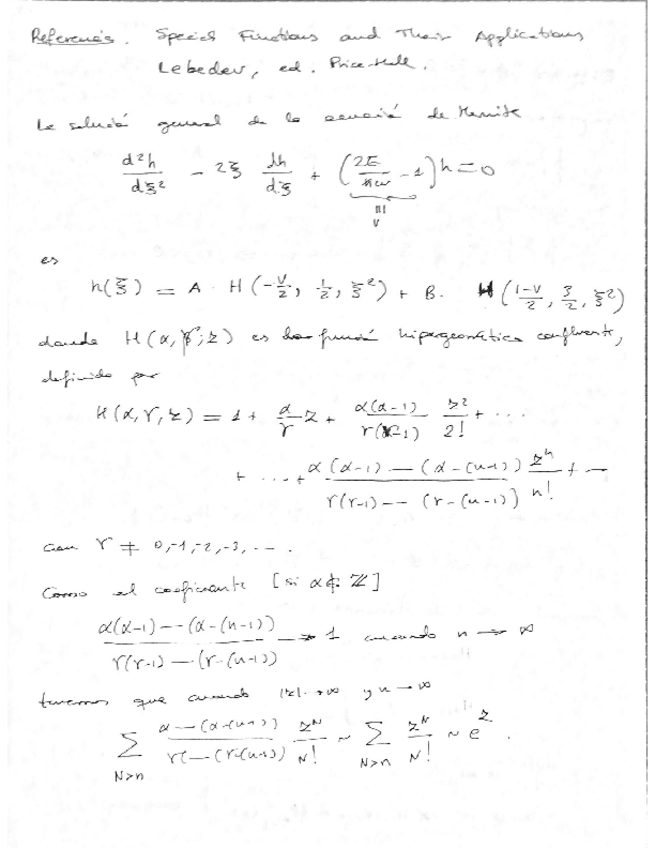 Referencias. Special Functions and Their Applications
Lebedev, ed. Price-Hall.
La solució general de la ecuació de Hermite
d²h/dξ² - 2ξ dh/dξ + (2E/ħω - 1) h = 0
≡
ν
es
h(ξ) = A · H(-ν/2, 1/2, ξ²) + B · H((1-ν)/2, 3/2, ξ²)
donde H(α, γ; z) es la funció hipergeométrica confluente,
definida por
H(α, γ, z) = 1 + α/γ z + α(α-1)/γ(γ-1) z²/2! + ...
+ ... + α(α-1) -- (α-(n-1))/γ(γ-1) -- (γ-(n-1)) zⁿ/n! + --
con γ ≠ 0, -1, -2, -3, -- .
Como el coeficiente [si α ∉ ℤ]
α(α-1) -- (α-(n-1))/γ(γ-1) -- (γ-(n-1)) → 1 cuando n → ∞
tenemos que cuando |z| → ∞ y n → ∞
∑ N>n α -- (α-(n-1))/γ(-- (γ-(n-1)) z^N/N! ~ ∑ N>n z^N/N! ~ e^z .